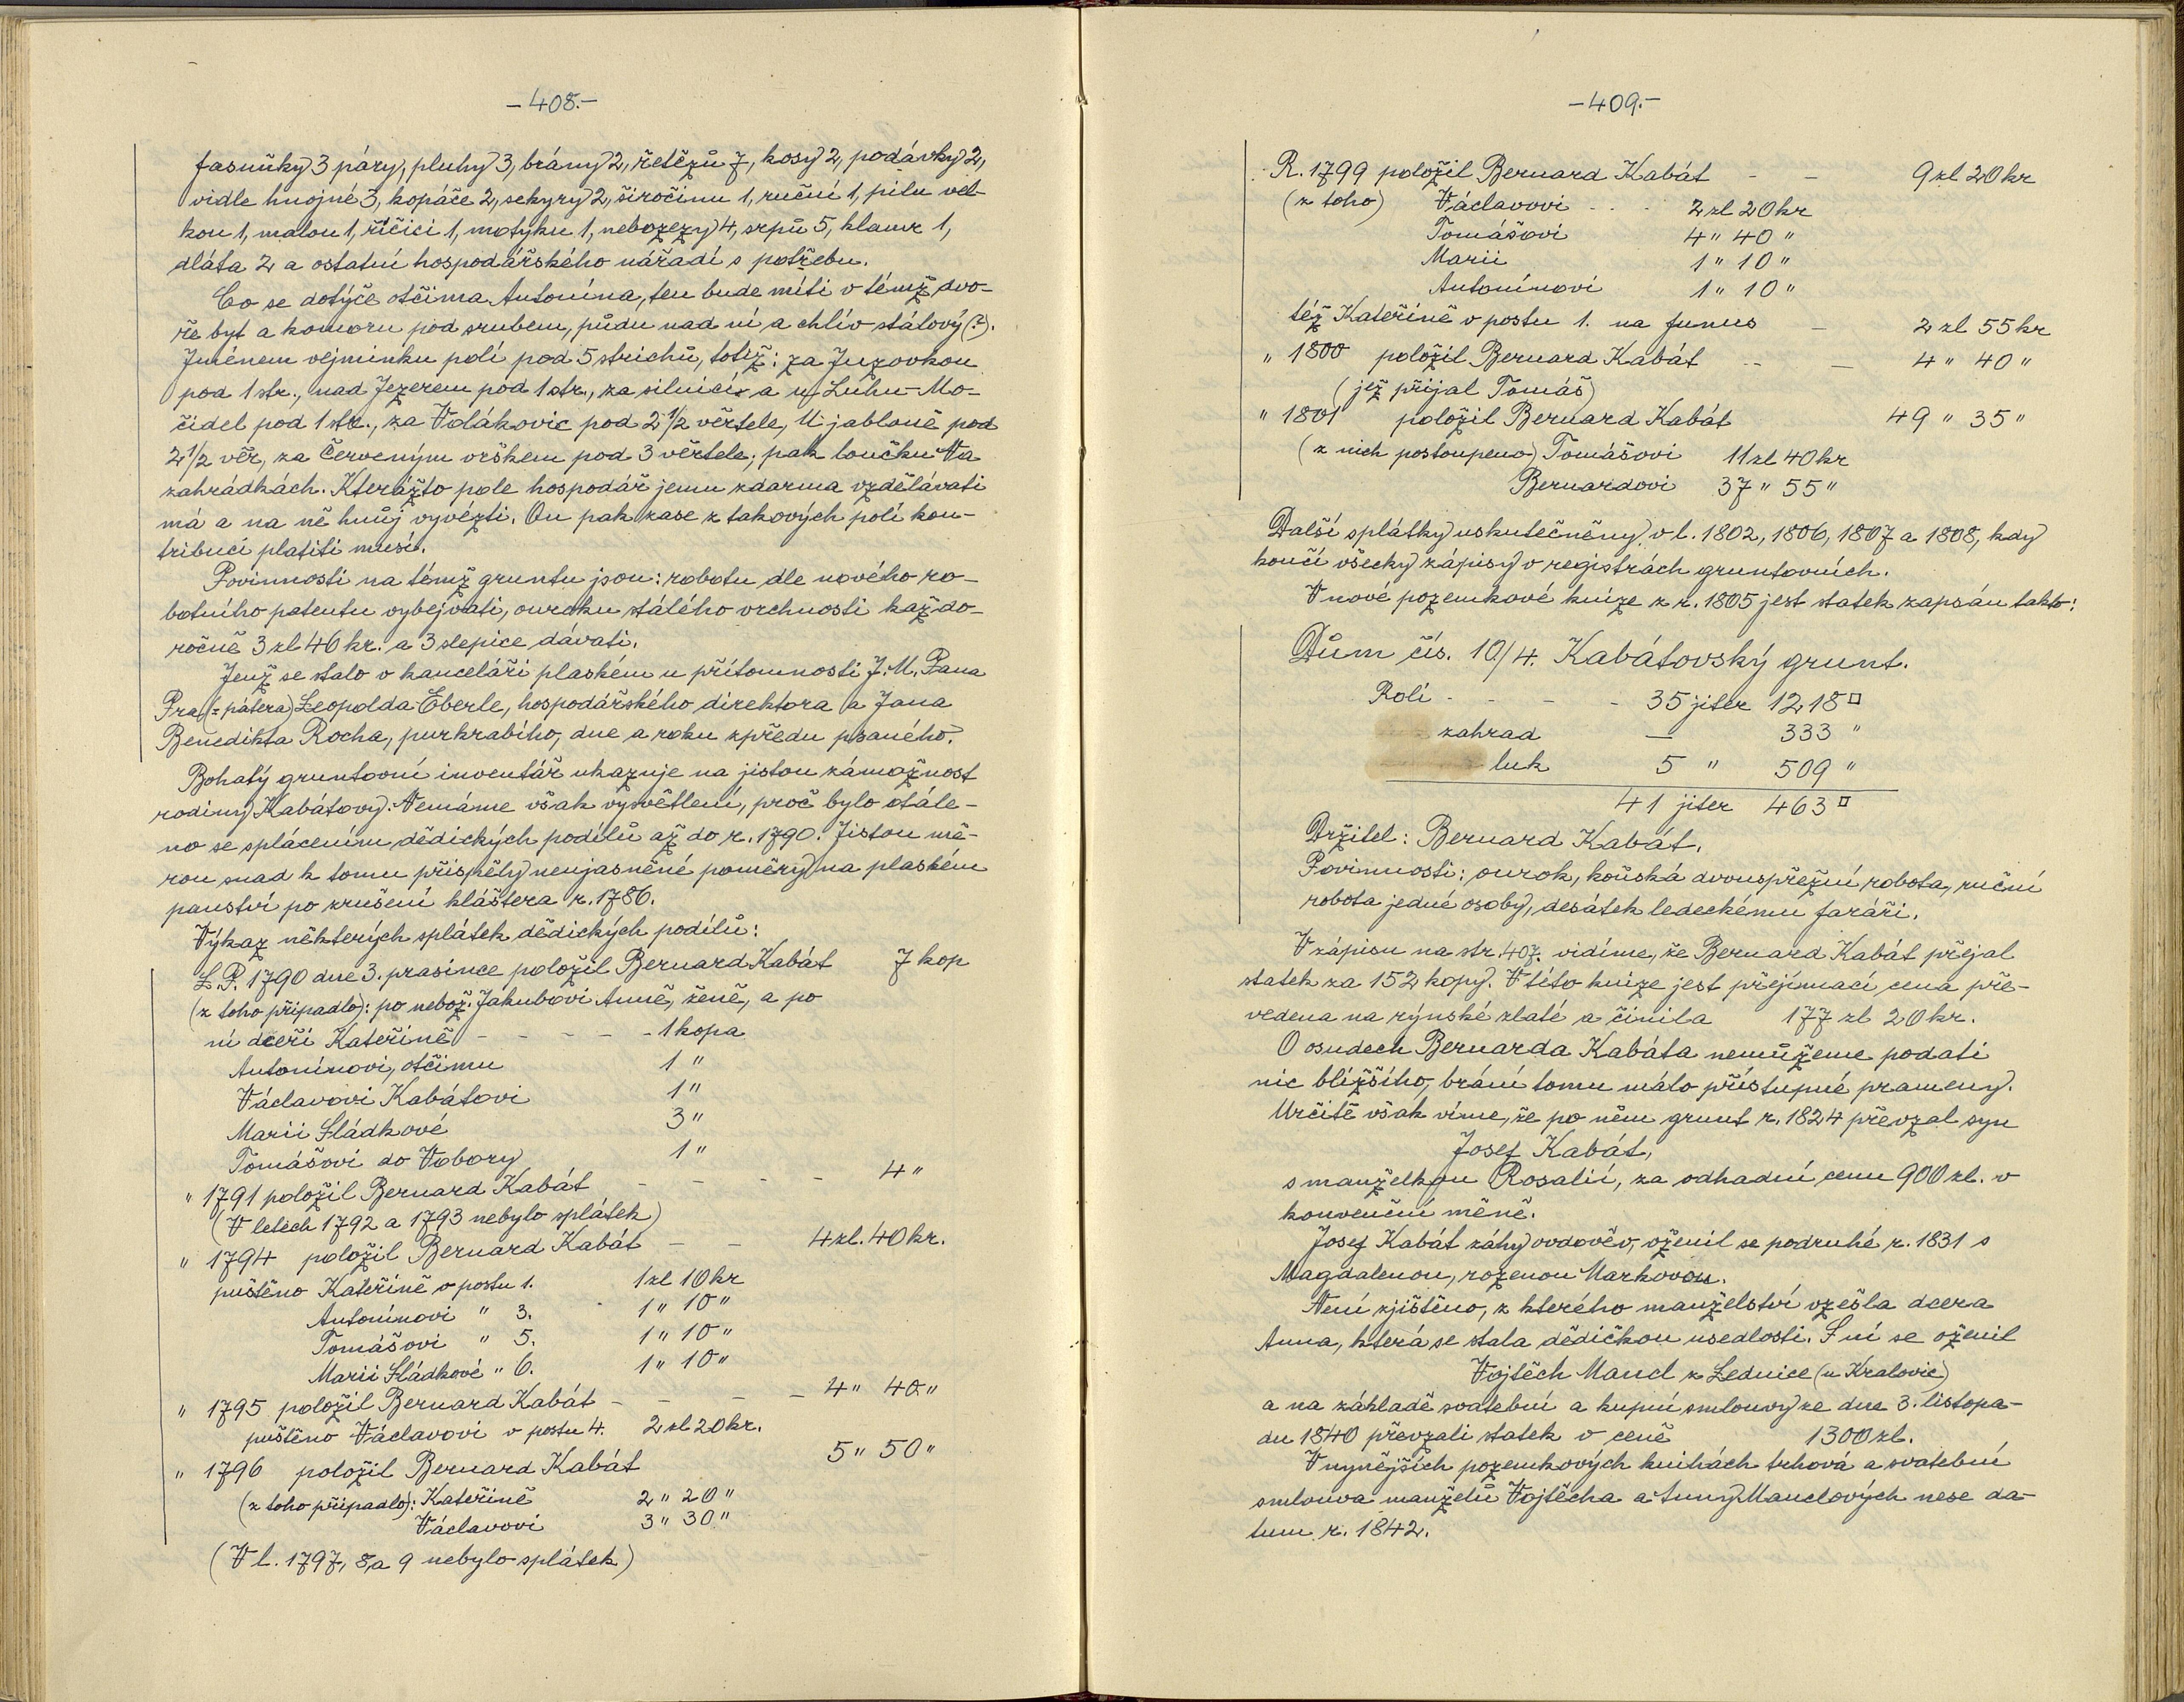 -408.-
fasuňky 3 páry, pluhy 3, brány 2, řetězů 7, kosy 2, podávky 2,
vidle hnojné 3, kopáče 2, sekyry 2, širočinu 1, ruční 1, pilu vel-
kou 1, malou 1, říčici 1, motyku 1, nebozezy 4, srpů 5, klamr 1,
dláta 2 a ostatní hospodářského nářadí s potřebu.
Co se dotýče otčima Antonína, ten bude míti v témž dvo-
ře byt a komoru pod srubem, půdu nad ní a chlív stálový (?).
Jménem vejminku polí pod 5 strichů, totiž: za Juzovkou
pod 1 str., nad Jezerem pod 1 str., za silnicí a u Luhu-Mo-
čidel pod 1 str., za Volákovic pod 2 1/2 věrtele, U jabloně pod
2 1/2 věr, za Červeným vrškem pod 3 věrtele; pak loučku Na
zahrádkách. Kterážto pole hospodář jemu zdarma vzdělávati
má a na ně hnůj vyvézti. On pak zase z takových polí kon-
tribucí platiti musí.
Povinnosti na témž gruntu jsou: robotu dle nového ro-
botního patentu vybejvati, ouroku stálého vrchnosti každo-
ročně 3 zl 46 kr. a 3 slepice dávati.
Jenž se stalo v kanceláři plaském u přítomnosti J. M. Pana
Pra (= pátera) Leopolda Eberle, hospodářského direktora a Jana
Benedikta Rocha, purkrabího, dne a roku zpředu psaného.
Bohatý gruntovní inventář ukazuje na jistou zámožnost
rodiny Kabátovy. Nemáme však vysvětlení, proč bylo otále-
no se splácením dědických podílů až do r. 1790. Jistou mě-
rou snad k tomu přispěly neujasněné poměry na plaském
panství po zrušení kláštera r. 1786.
Výkaz některých splátek dědických podílů:
L. P. 1790 dne 3. prasince položil Bernard Kabát 7 kop
(z toho připadlo): po nebož. Jakubovi Anně, ženě, a po
ní dceři Kateřině - - - - - 1 kopa
Antonínovi, otčimu 1 "
Václavovi Kabátovi 1 "
Marii Sládkové 3 "
Tomášovi do Vobory 1 "
" 1791 položil Bernard Kabát - - - - 4 "
(V letech 1792 a 1793 nebylo splátek)
" 1794 položil Bernard Kabát - - 4 zl. 40 kr.
puštěno Kateřině v postu 1. 1 zl 10 kr
Antonínovi " 3. 1 " 10 "
Tomášovi " 5. 1 " 10 "
Marii Sládkové " 6. 1 " 10 "
" 1795 položil Bernard Kabát - - - - 4 " 40 "
puštěno Václavovi v postu 4. 2 zl 20 kr.
" 1796 položil Bernard Kabát 5 " 50 "
(z toho připadlo): Kateřině 2 " 20 "
Václavovi 3 " 30 "
(V l. 1797, 8, a 9 nebylo splátek)
-409.-
R. 1799 položil Bernard Kabát - - 9 zl 20 kr
(z toho) Václavovi - - - 2 zl 20 kr
Tomášovi 4 " 40 "
Marii 1 " 10 "
Antonínovi 1 " 10 "
též Kateřině v postu 1. na funus - 2 zl 55 kr
" 1800 položil Bernard Kabát - - 4 " 40 "
(jež přijal Tomáš)
" 1801 položil Bernard Kabát 49 " 35 "
(z nich postoupeno) Tomášovi 11 zl 40 kr
Bernardovi 37 " 55 "
Další splátky uskutečněny v l. 1802, 1806, 1807 a 1808, kdy
končí všecky zápisy v registrách gruntovních.
V nové pozemkové knize z r. 1805 jest statek zapsán takto:
Dům čís. 10./4. Kabátovský grunt.
Rolí - - - - 35 jiter 1218 □
zahrad — 333 "
luk 5 " 509 "
41 jiter 463 □
Držitel: Bernard Kabát.
Povinnosti: ourok, koňská dvouspřežní robota, ruční
robota jedné osoby, desátek ledeckému faráři.
V zápisu na str. 407. vidíme, že Bernard Kabát přejal
statek za 152 kopy. V této knize jest přejímací cena pře-
vedena na rýnské zlaté a činila 177 zl 20 kr.
O osudech Bernarda Kabáta nemůžeme podati
nic bližšího, brání tomu málo přístupné prameny.
Určitě však víme, že po něm grunt r. 1824 převzal syn
Josef Kabát,
s manželkou Rosalií, za odhadní cenu 900 zl. v
konvenční měně.
Josef Kabát záhy ovdověv, oženil se podruhé r. 1831 s
Magdalenou, rozenou Markovou.
Není zjištěno, z kterého manželství vzešla dcera
Anna, která se stala dědičkou usedlosti. S ní se oženil
Vojtěch Mancl z Lednice (u Kralovic)
a na základě svatební a kupní smlouvy ze dne 3. listopa-
du 1840 převzali statek v ceně 1300 zl.
V nynějších pozemkových knihách trhová a svatební
smlouva manželů Vojtěcha a Anny Manclových nese da-
tum r. 1842.